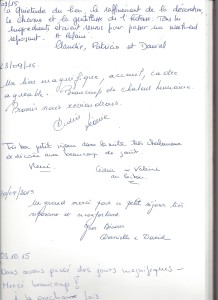 /15
La quiétude du lieu, le raffinement de la décoration,
le charme et la gentillesse de l'hôtesse. Tous les
ingrédients étaient réunis pour passer un week-end
reposant. A refaire
Claudie, Patricia et Daniel
23/09/15
Un lieu magnifique, accueil, cadre
agréable. Beaucoup de chaleur humaine.
nous reviendrons.
Très bon petit séjour dans la suite
et décorée avec beaucoup de goût.
Merci
2015
Un grand merci pour ce petit séjour très
reposant et confortable.
Gros Bisous
& David
23.10.15
Nous avons passé des jours magnifiques -
Merci beaucoup !
A la prochaine fois